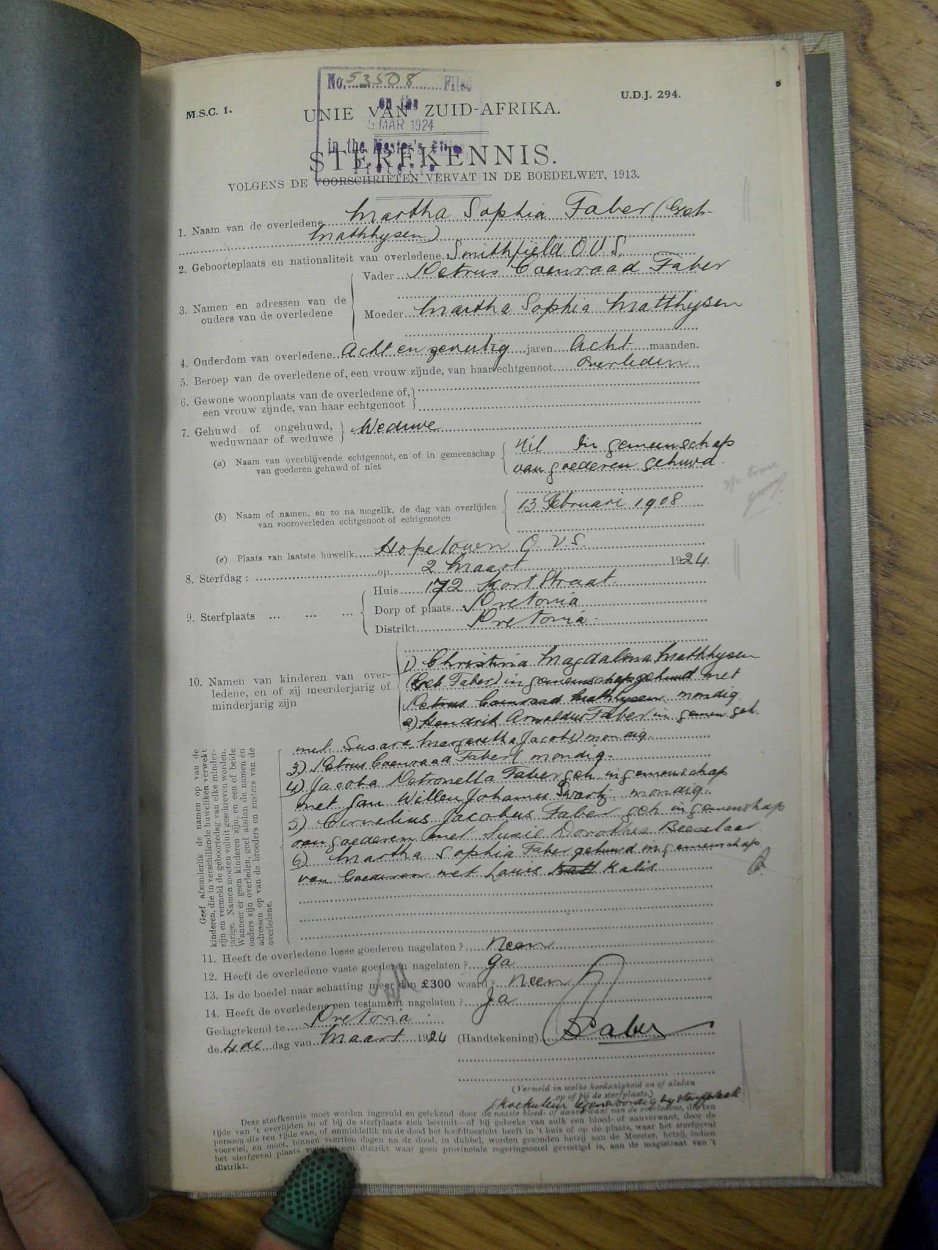 No. 53508 Filed
on the
5 MAR 1924
in the Master's Office
Pretoria
M.S.C. 1.
U.D.J. 294.
UNIE VAN ZUID-AFRIKA.
STERFKENNIS.
VOLGENS DE VOORSCHRIFTEN VERVAT IN DE BOEDELWET, 1913.
1. Naam van de overledene Martha Sophia Faber (Geb.
Mathhysen)
2. Geboorteplaats en nationaliteit van overledene. Smithfield O.V.S.
3. Namen en adressen van de ouders van de overledene
Vader Petrus Coenraad Faber
Moeder Martha Sophia Matthysen
4. Ouderdom van overledene Acht en zeventig jaren Acht maanden.
5. Beroep van de overledene of, een vrouw zijnde, van haar echtgenoot Overleden
6. Gewone woonplaats van de overledene of,
een vrouw zijnde, van haar echtgenoot
7. Gehuwd of ongehuwd,
weduwnaar of weduwe Weduwe
(a) Naam van overblijvende echtgenoot, en of in gemeenschap
van goederen gehuwd of niet
Nil In gemeenschap
van goederen gehuwd.
(b) Naam of namen, en zo na mogelik, de dag van overlijden
van vooroverleden echtgenoot of echtgenoten
13 Februari 1908
(c) Plaats van laatste huwelik Hopetown O.V.S.
8. Sterfdag: op 2 Maart 1924
9. Sterfplaats ... ... ...
Huis 172 Mort Straat
Dorp of plaats Pretoria
Distrikt Pretoria.
10. Namen van kinderen van overledene, en of zij meerderjarig of minderjarig zijn
1) Christina Magdalena Mathhysen
(Geb Faber) in gemeenschap gehuwd met
Petrus Coenraad Mathhysen mondig
2) Hendrik Arnoldus Faber in gemen geh.
met Susara Margaretha Jacobs mondig.
3) Petrus Coenraad Faber mondig.
4) Jacoba Petronella Faber geh in gemeenschap
met Jan Willem Johannes Swartz mondig.
5) Cornelius Jacobus Faber geh in gemenschap
van goederen met Susie Dorothea
6) Martha Sophia Faber gehuwd in gemeenschap
van Goederen met Louis Kalis
Geef afzonderlik de namen op van de
kinderen, die in verschillende huweliken verwekt
zijn en vermeld de geboortedag van elke minder-
jarige. Namen moeten voluit geschreven worden.
Wanneer er geen kinderen zijn, en een of beide
ouders zijn overleden, geef alsdan de namen en
adressen op van de broeders en zusters van de
overledene.
11. Heeft de overledene losse goederen nagelaten? Neen
12. Heeft de overledene vaste goederen nagelaten? Ja
13. Is de boedel naar schatting meer dan £300 waard? Neen
14. Heeft de overledene een testament nagelaten? Ja
Gedagtekend te Pretoria.
de 4de dag van Maart 1924 (Handtekening) Faber
(Vermeld in welke hoedanigheid en of alsdan
op of bij de sterfplaats.)
Deze sterfkennis moet worden ingevuld en getekend door de naaste bloed- of aanverwant van de overledene, die ten
tijde van 't overlijden in of bij de sterfplaats zich bevindt—of bij gebreke van zulk een bloed- of aanverwant, door de
persoon die ten tijde van, of onmiddellik na de dood het hoofdtoezicht heeft in 't huis of op de plaats, waar het sterfgeval
voorviel, en moet, binnen veertien dagen na de dood, in dubbel, worden gezonden hetzij aan de Meester, hetzij, indien
het sterfgeval plaats vond in een distrikt waar geen provinciale regeringszetel gevestigd is, aan de magistraat van 't
distrikt.